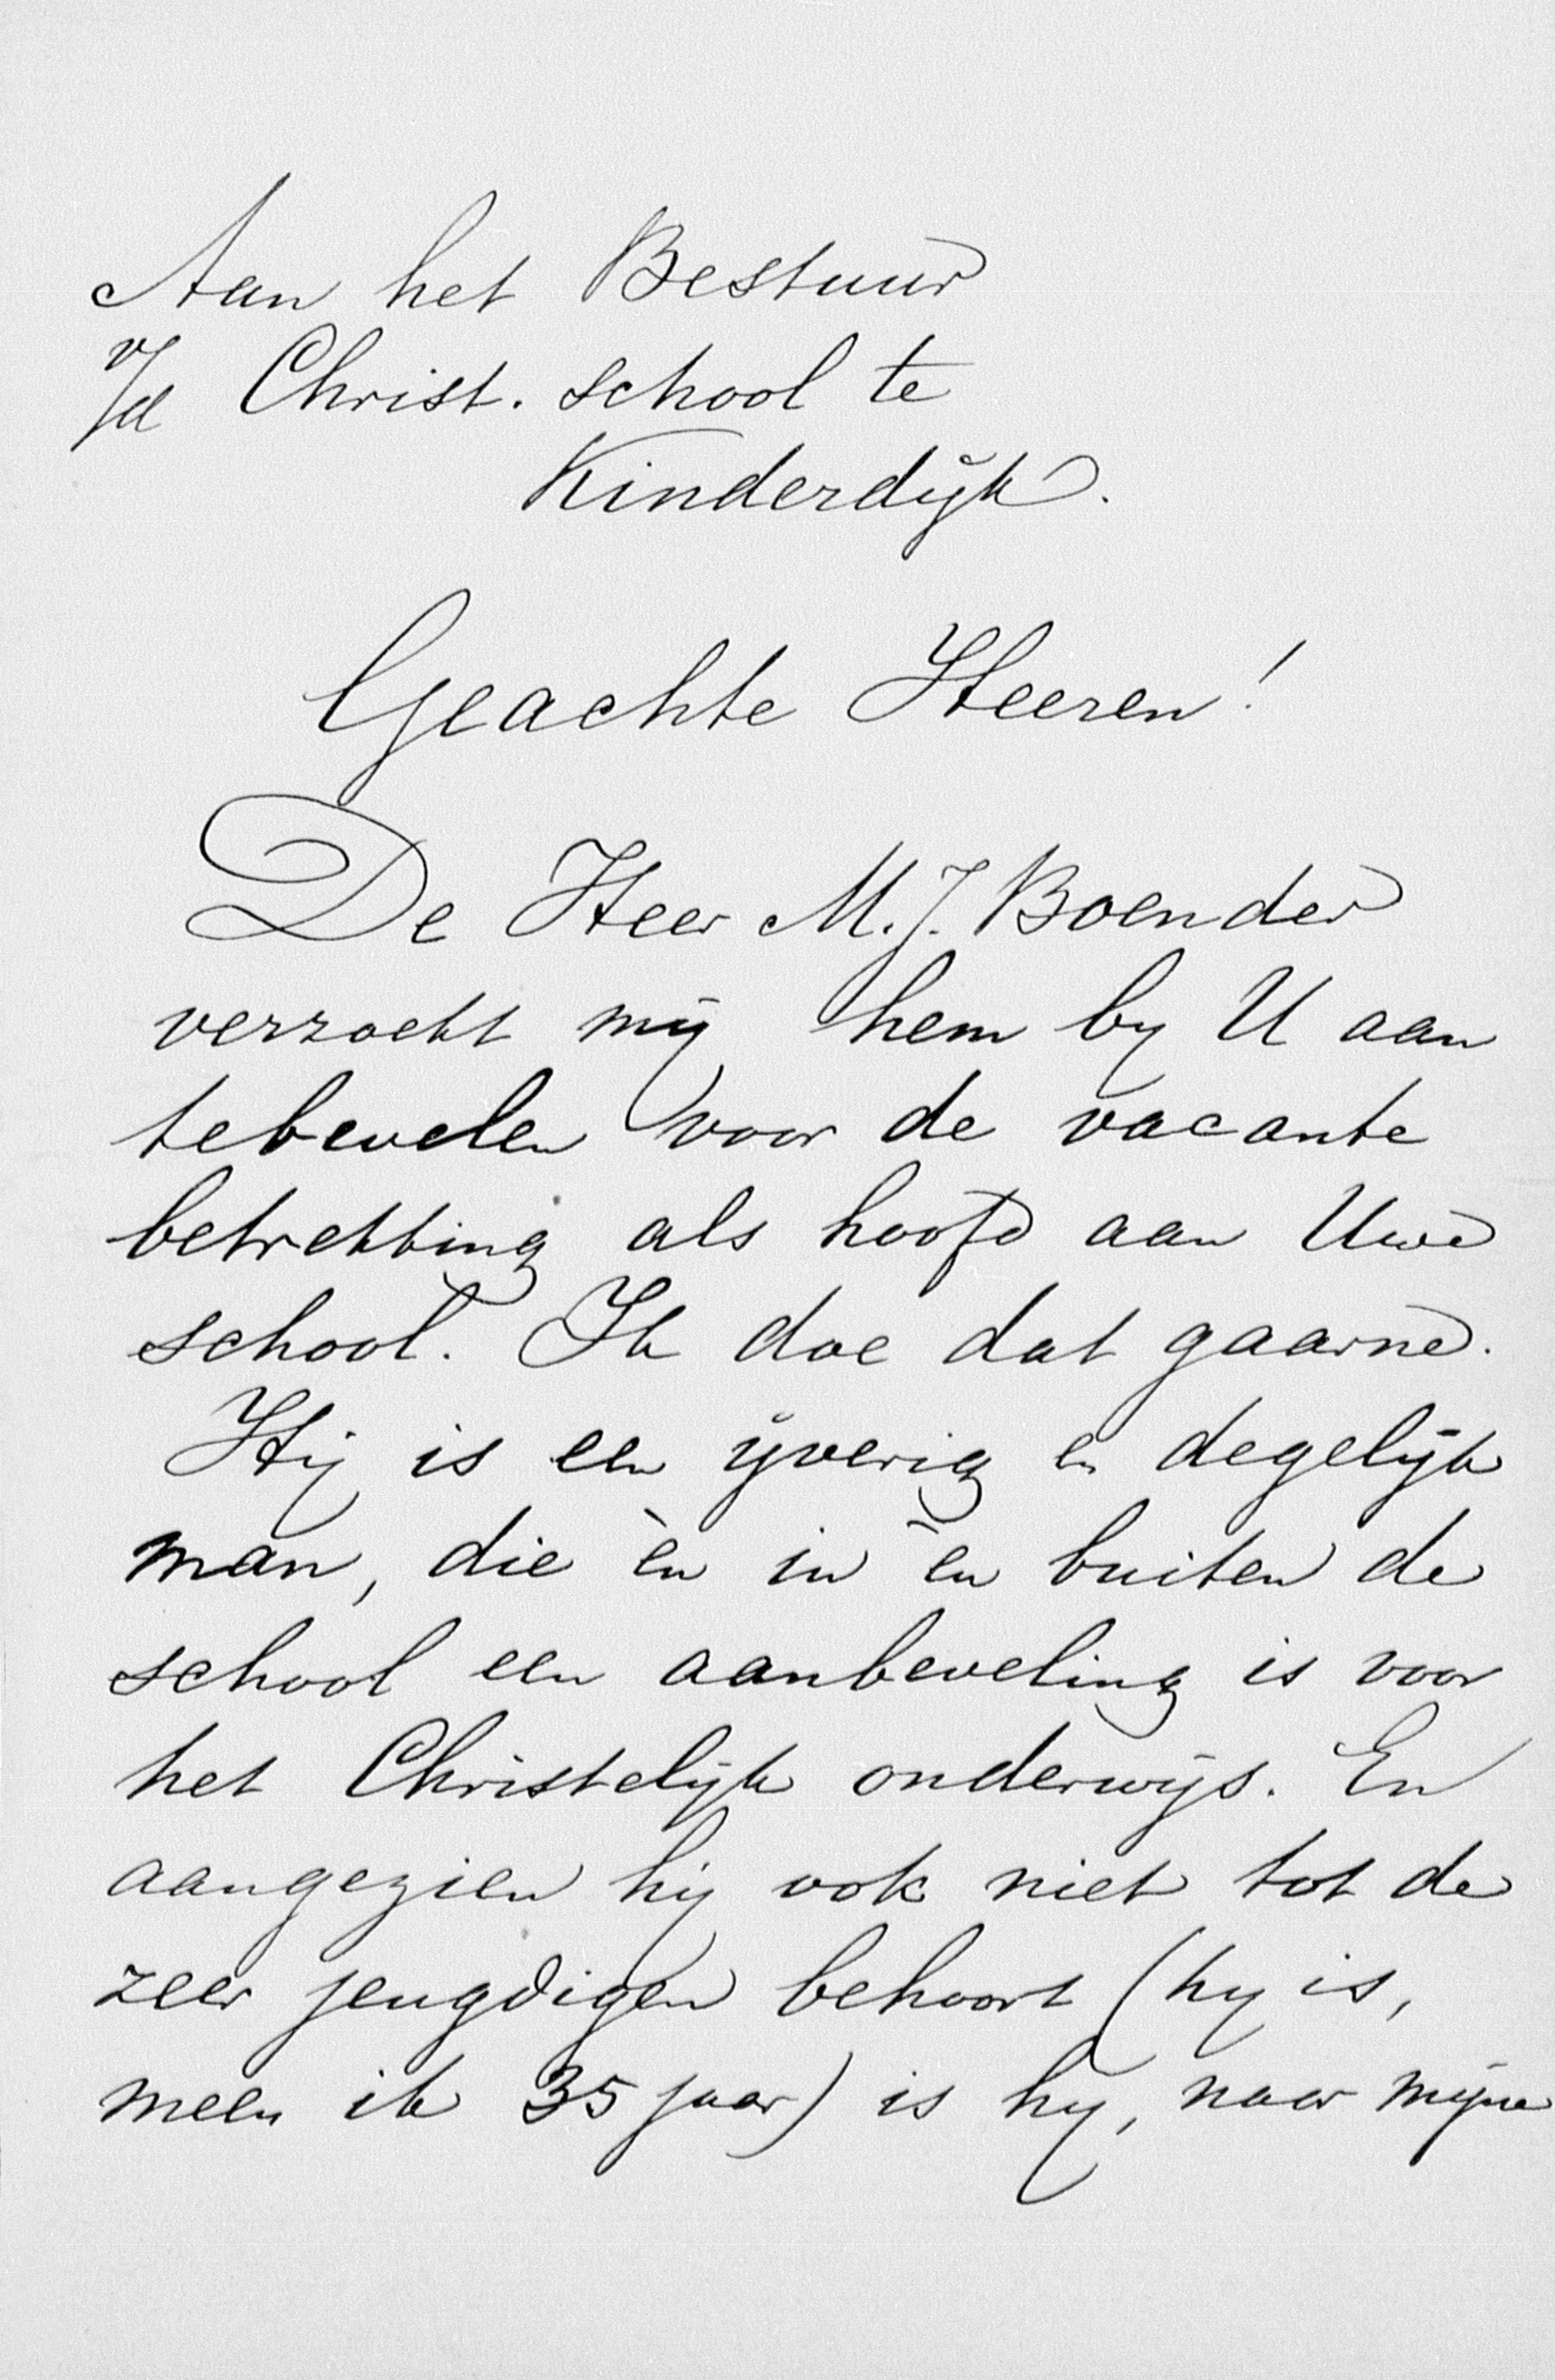 Aan het Bestuur
v/d Christ. school te
Kinderdijk.
Geachte Heeren!
De Heer M.J. Boender
verzocht mij hem by U aan
tebevelen voor de vacante
betrekking als hoofd aan Uwe
school. Ik doe dat gaarne.
Hij is een ijverig en degelijk
man, die èn in èn buiten de
school een aanbeveling is voor
het Christelijk onderwijs. En
aangezien hij ook niet tot de
zeer jeugdigen behoort (hy is,
meen ik 35 jaar) is hy, naar mijne